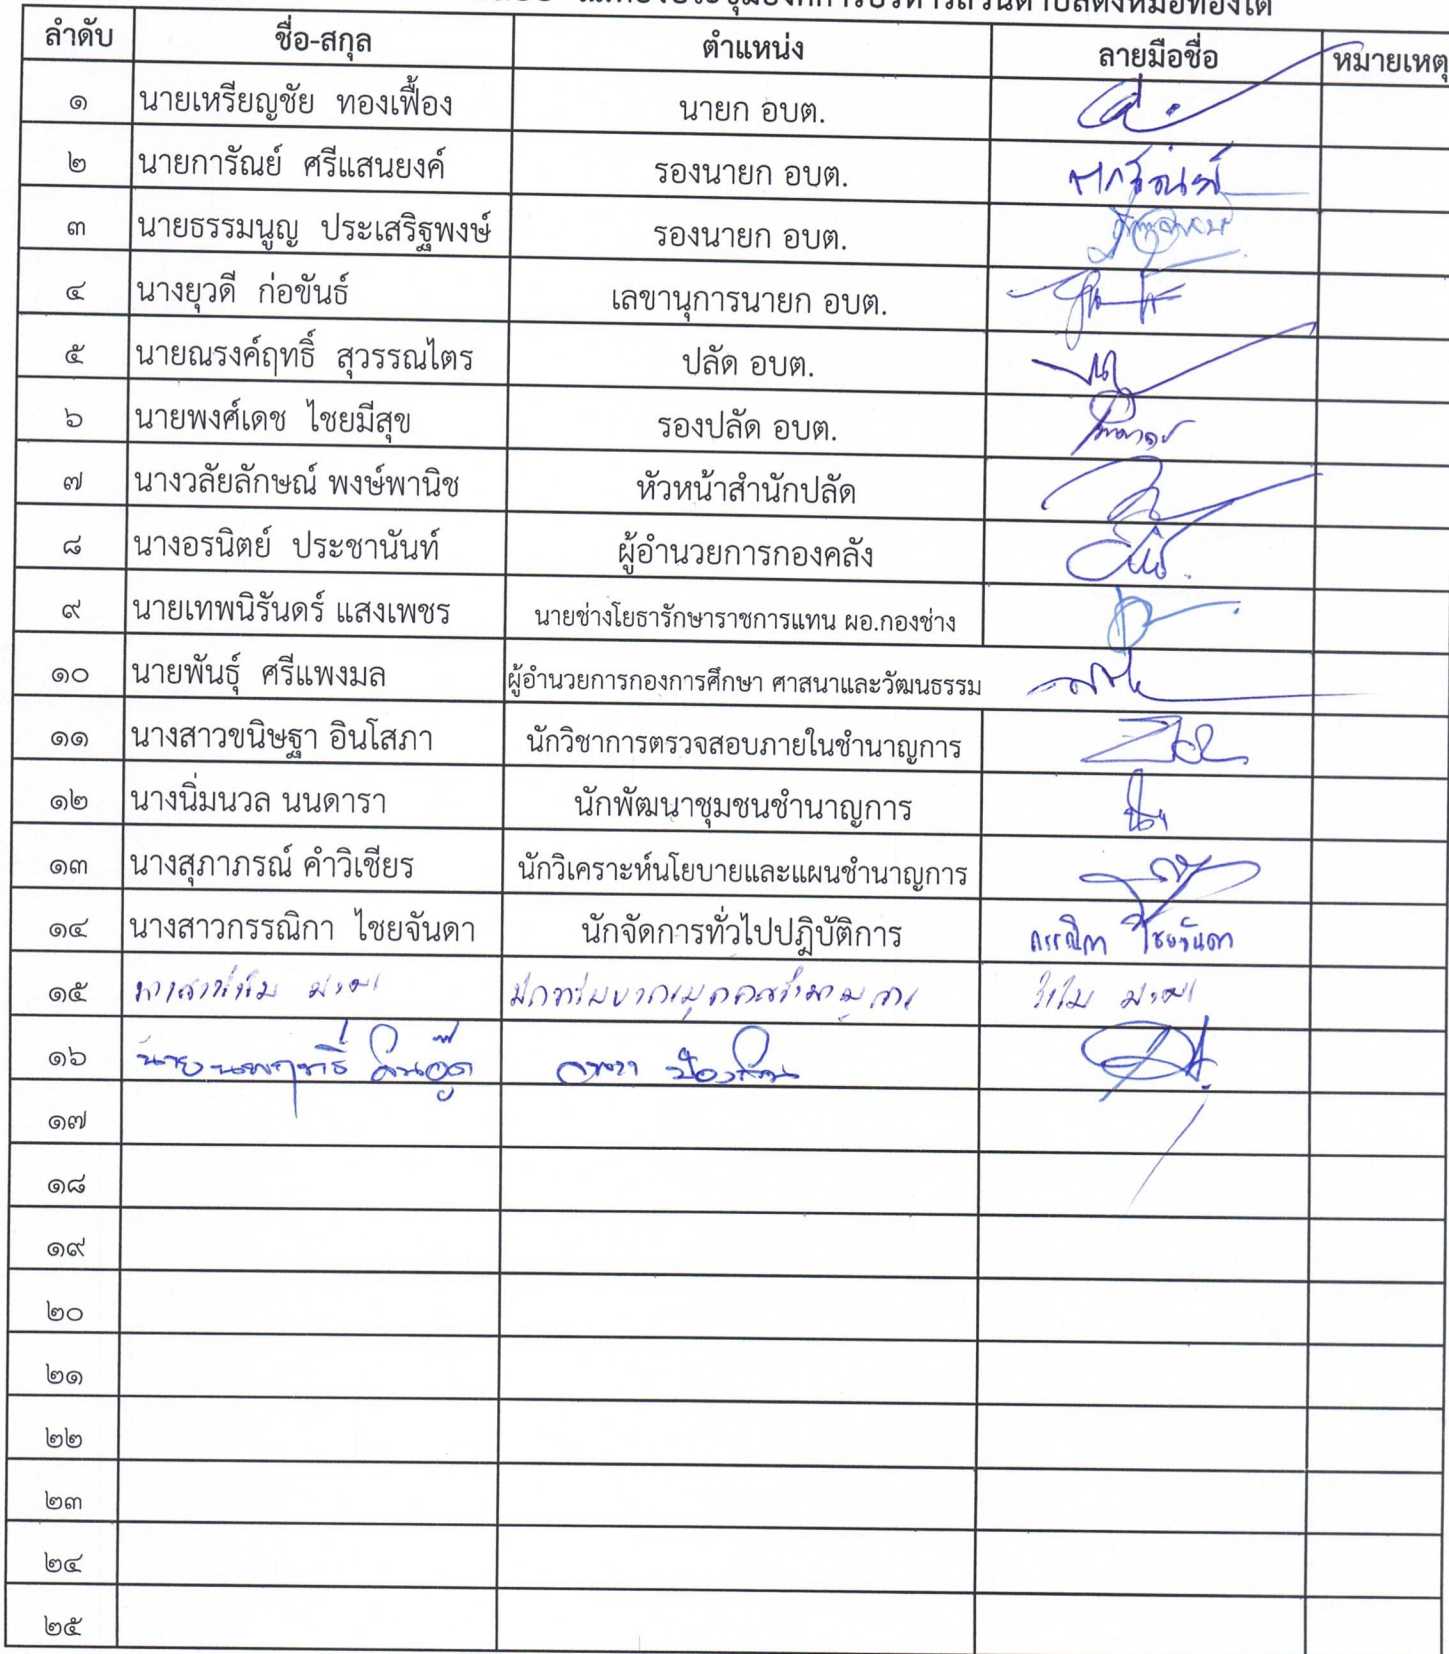 ลำดับ ชื่อ-สกุล ตำแหน่ง ลายมือชื่อ หมายเหตุ
๑ นายเหรียญชัย ทองเฟื้อง นายก อบต.
๒ นายการัณย์ ศรีแสนยงค์ รองนายก อบต. การัณย์
๓ นายธรรมนูญ ประเสริฐพงษ์ รองนายก อบต.
๔ นางยุวดี ก่อขันธ์ เลขานุการนายก อบต.
๕ นายณรงค์ฤทธิ์ สุวรรณไตร ปลัด อบต.
๖ นายพงศ์เดช ไชยมีสุข รองปลัด อบต.
๗ นางวลัยลักษณ์ พงษ์พานิช หัวหน้าสำนักปลัด
๘ นางอรนิตย์ ประชานันท์ ผู้อำนวยการกองคลัง
๙ นายเทพนิรันดร์ แสงเพชร นายช่างโยธารักษาราชการแทน ผอ.กองช่าง
๑๐ นายพันธุ์ ศรีแพงมล ผู้อำนวยการกองการศึกษา ศาสนาและวัฒนธรรม
๑๑ นางสาวขนิษฐา อินโสภา นักวิชาการตรวจสอบภายในชำนาญการ
๑๒ นางนิ่มนวล นนดารา นักพัฒนาชุมชนชำนาญการ
๑๓ นางสุภาภรณ์ คำวิเชียร นักวิเคราะห์นโยบายและแผนชำนาญการ
๑๔ นางสาวกรรณิกา ไชยจันดา นักจัดการทั่วไปปฏิบัติการ กรรณิกา ไชยจันดา
๑๕ นักทรัพยากรบุคคลชำนาญการ
๑๖ นายนพฤทธิ์
๑๗
๑๘
๑๙
๒๐
๒๑
๒๒
๒๓
๒๔
๒๕